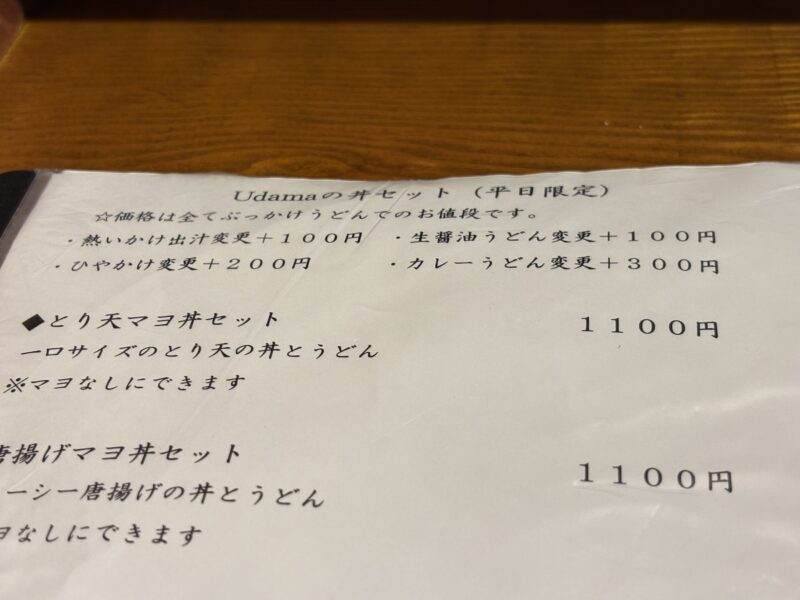 Udamaの丼セット（平日限定）
☆価格は全てぶっかけうどんでのお値段です。
・熱いかけ出汁変更＋１００円 ・生醤油うどん変更＋１００円
・ひやかけ変更＋２００円 ・カレーうどん変更＋３００円
◆とり天マヨ丼セット １１００円
一口サイズのとり天の丼とうどん
※マヨなしにできます
唐揚げマヨ丼セット １１００円
ーシー唐揚げの丼とうどん
ヨなしにできます